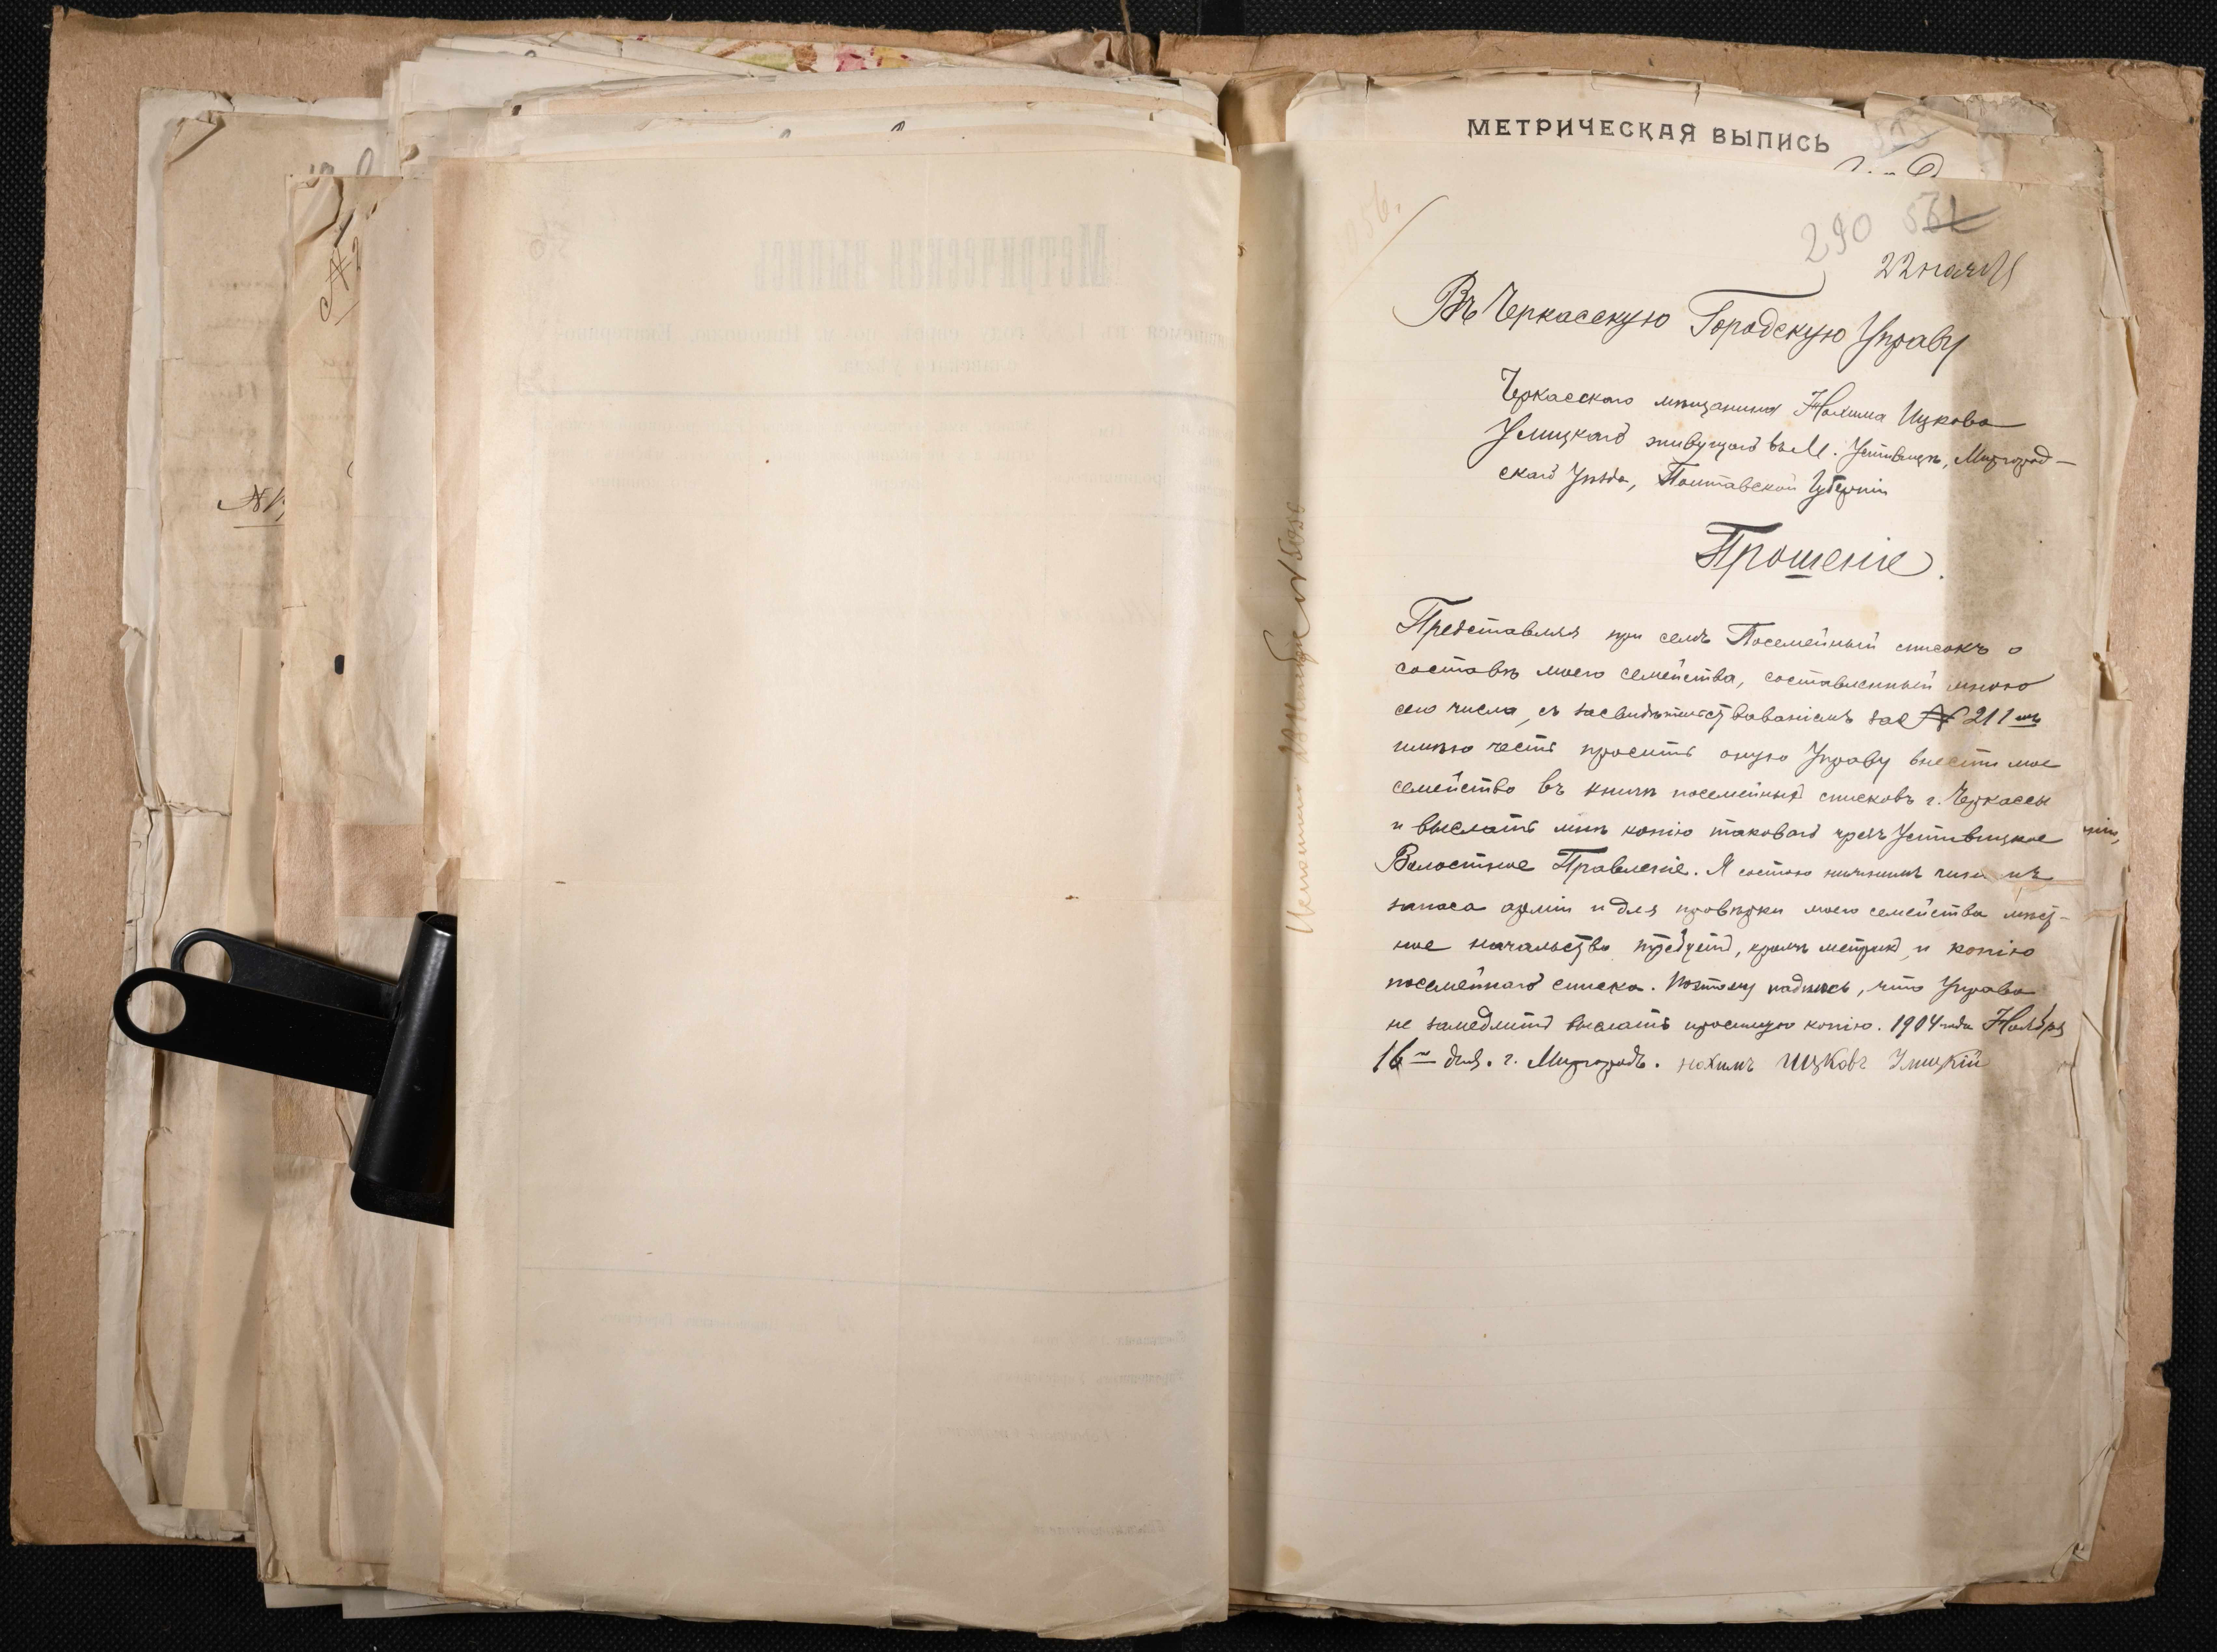 МЕТРИЧЕСКАЯ ВЫПИСЬ
290 561
22 ноября
Въ Черкасскую Городскую Управу
Черкасскаго мѣщанина Нохима Ицкова
Улицкаго живущаго въ М. Устивицѣ, Миргород-
скаго Уѣзда, Полтавской Губерніи
Прошеніе.
Представляя при семъ Посемейный списокъ о
составѣ моего семейства, составленный мною
сего числа, съ засвидѣтельствованіемъ за № 211
имѣю честь просить оную Управу внести мое
семейство въ книги посемейныхъ списковъ г. Черкассы
и выслать мнѣ копію таковаго чрезъ Устивицкое
Волостное Правленіе. Я состою нижнимъ чиномъ
запаса арміи и для провѣрки моего семейства мѣст-
ное начальство требуетъ, кромѣ метрикъ, и копію
посемейнаго списка. Поэтому надѣюсь, что Управа
не замедлитъ выслать просимую копію. 1904 года Ноября
16 дня. г. Миргородъ. Нохимъ Ицковъ Улицкій
Исполнено 23 Ноября № 5030
Метрическая выпись